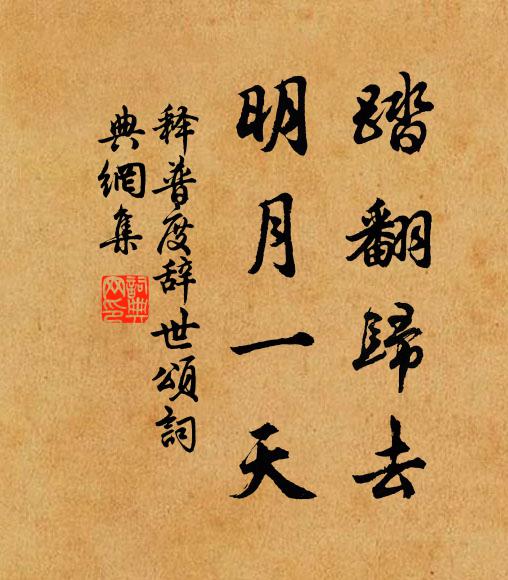 踏翻歸去
明月一天
释普度辞世頌詞
典網集
詞典网印